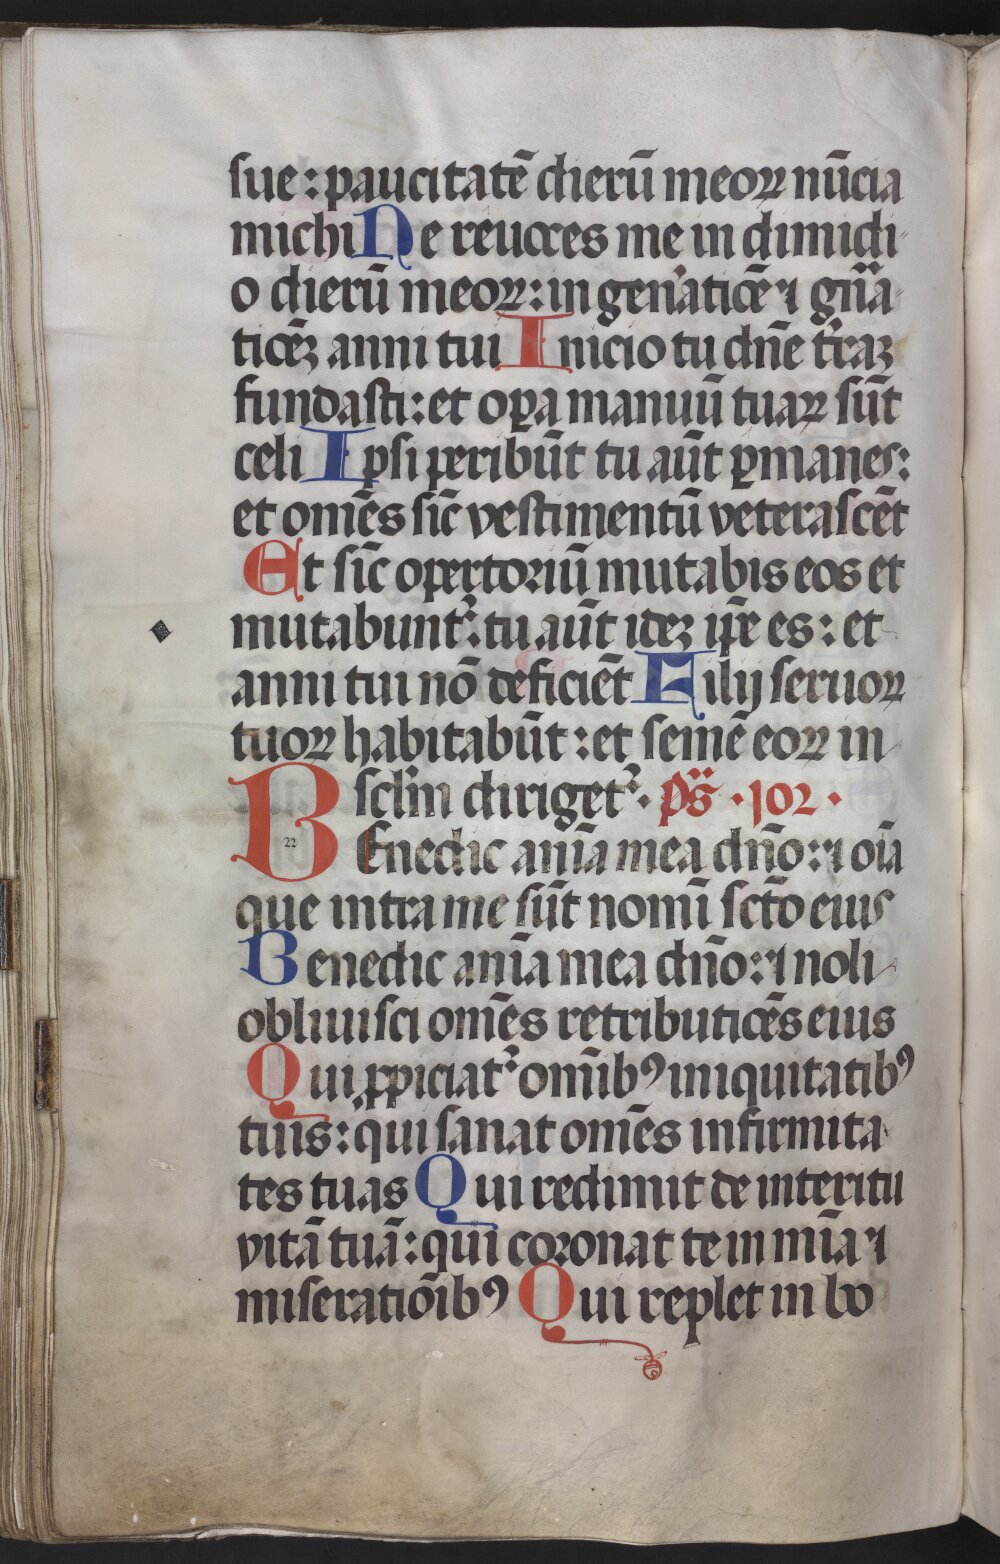 sue : paucitatē dierū meoꝝ nūcia
michi Ne reuoces me in dimidi
o dierū meoꝝ : in gen'atiōe ⁊ gn̄a
tiōeꝫ anni tui Inicio tu dn̄e t'raꝫ
fundasti : et oꝑa manuū tuaꝝ sūt
celi Ipsi peribūt tu aūt ꝑmanes :
et om̄es sic̄ vestimentū veterascēt
Et sic̄ opertoriū mutabis eos et
mutabunt᷑ : tu aūt ideꝫ ip̄e es : et
anni tui nō deficiēt Filij seruoꝝ
tuoꝝ habitabūt : et semē eoꝝ in
scl'm diriget᷑ · ps̄ · 102 ·
22
BEnedic anīa mea dn̄o : ⁊ oīa
que intra me sūt nomī sct̄o eius
Benedic anīa mea dn̄o : ⁊ noli
obliuisci om̄es retributiōes eius
Qui ꝓpiciat᷑ om̄ibꝰ iniquitatibꝰ
tuis : qui sanat om̄es infirmita
tes tuas Qui redimit de interitu
vitā tuā : qui coronat te in mīa ⁊
miseratiōibꝰ Qui replet in bo